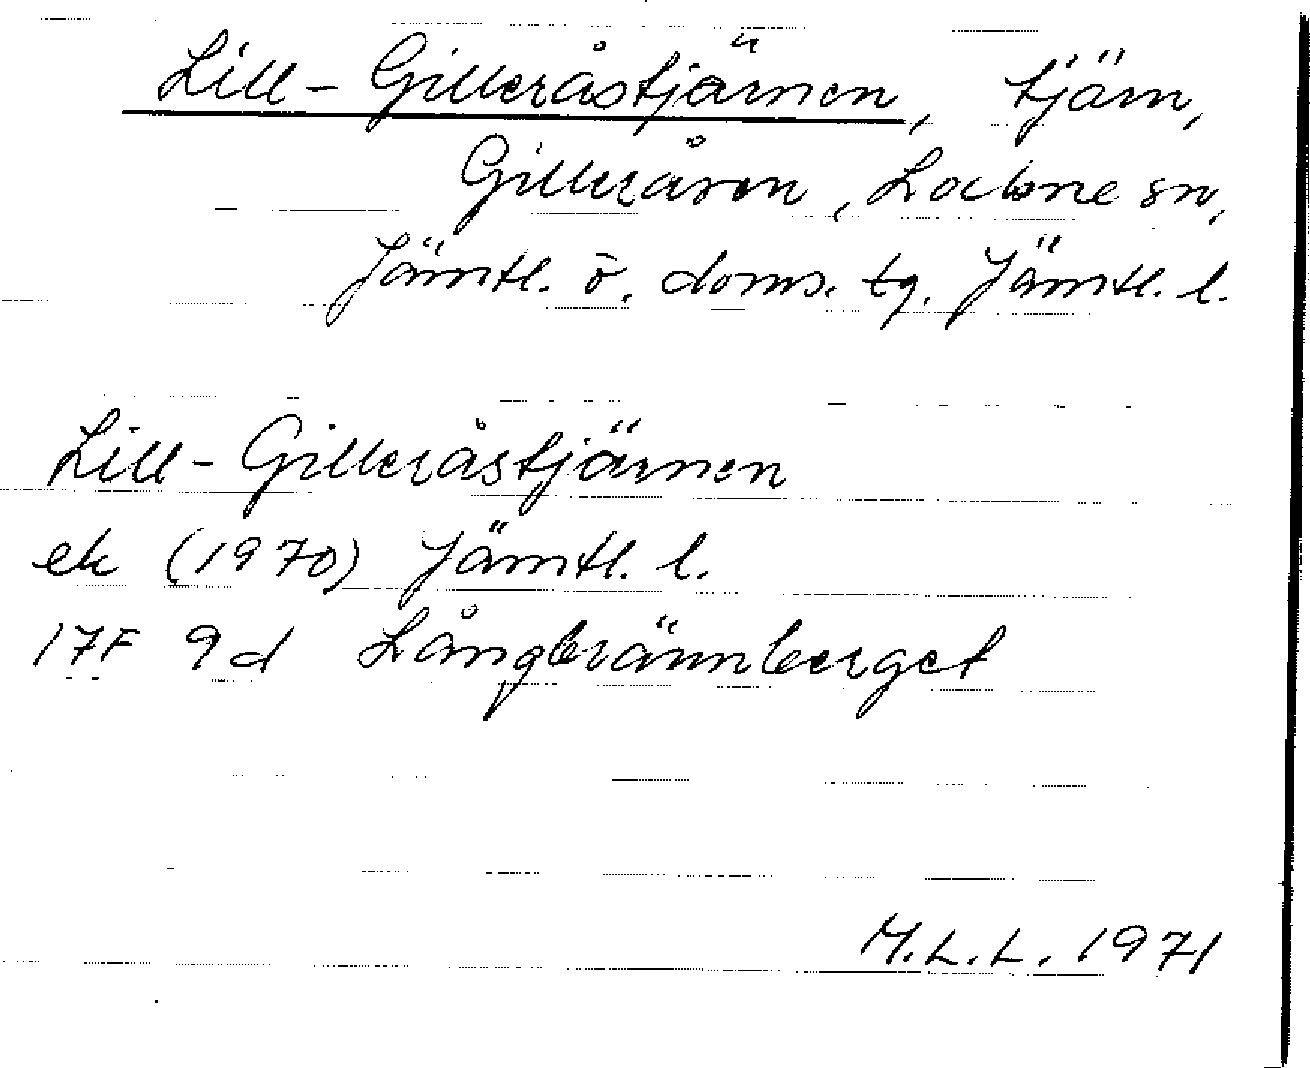 Lill-Gilleråstjärnen, tjärn,
Gilleråsen, Lockne sn,
Jämtl. ö. doms. tg. Jämtl. l.
Lill-Gilleråstjärnen
ek (1970) Jämtl. l.
17F 9d Långbrännberget
M.L.L. 1971